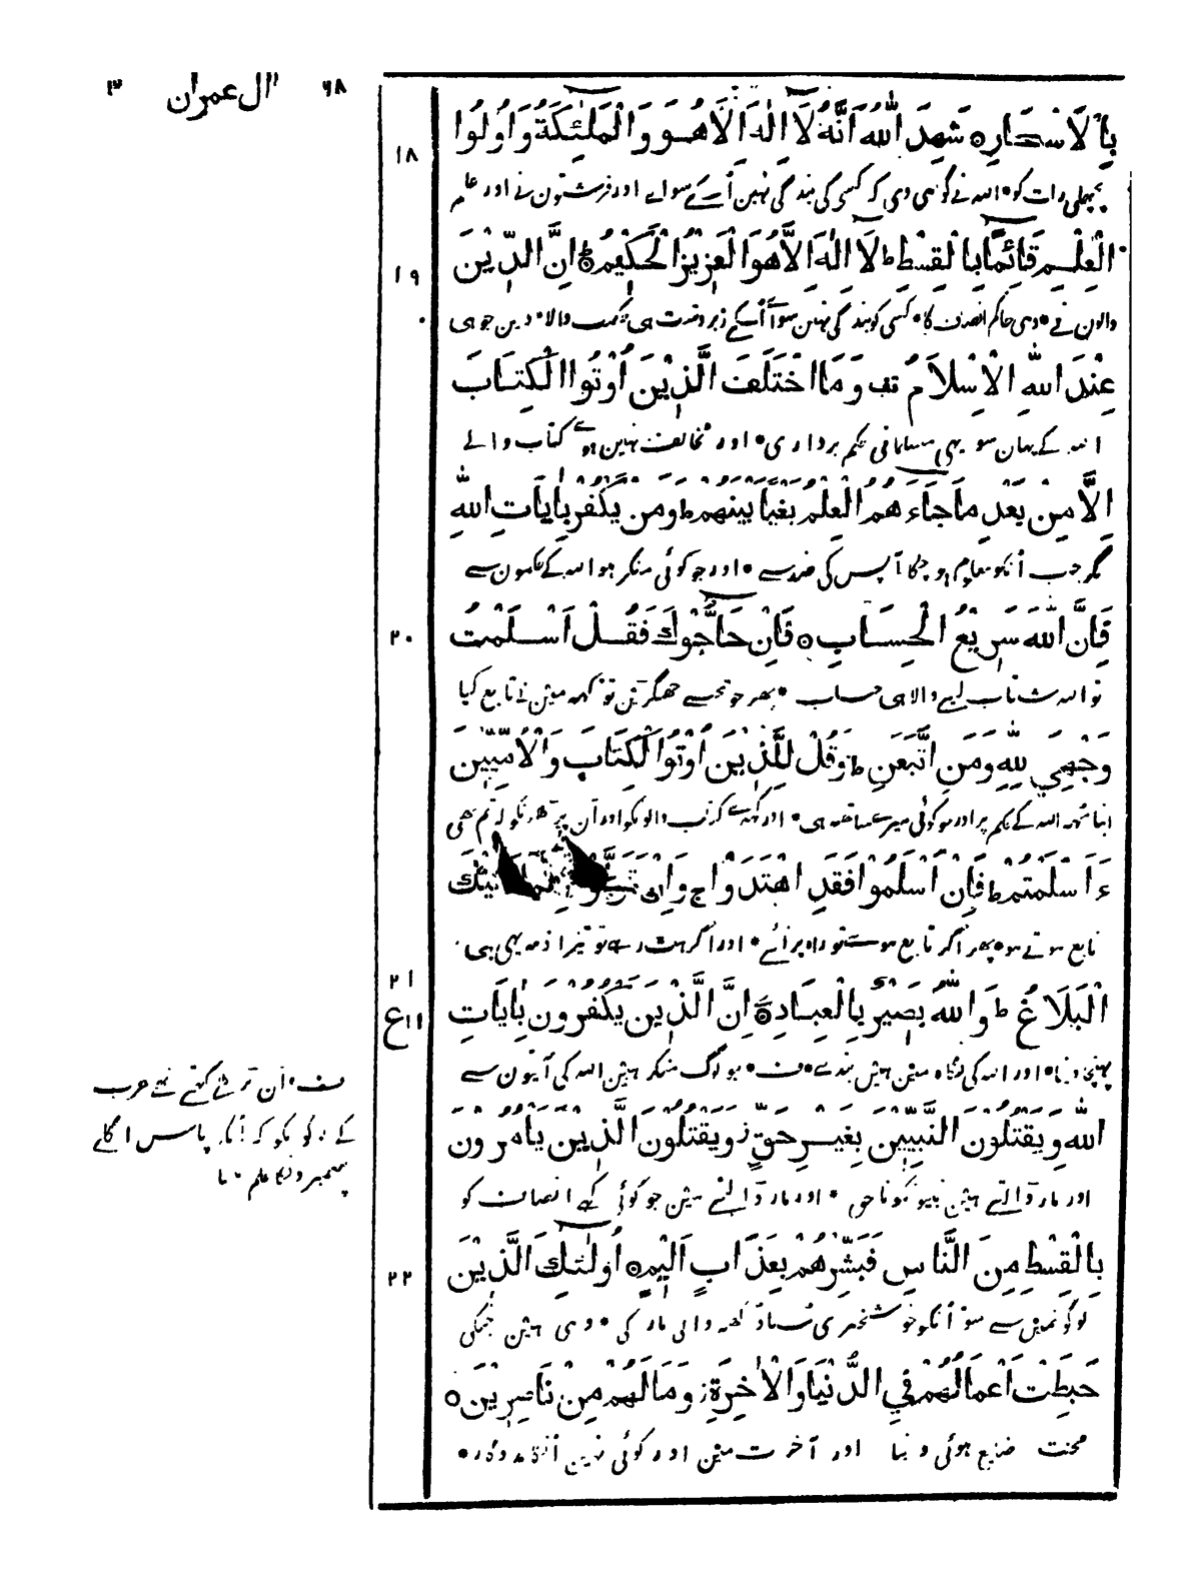 ٣ اٰل عمران ٦٨
بِالْاَسْحَارِ ۝ شَهِدَ اللّٰهُ اَنَّهٗ لَا اِلٰهَ اِلَّا هُوَ وَالْمَلٰئِكَةُ وَاُولُوا
١٨
پچھلی رات کو • اللہ نے گواہی دی کہ کسی کی بندگی نہین اُسکے سواے اور فرشتون نے اور علم
الْعِلْمِ قَائِمًا بِالْقِسْطِ ط لَا اِلٰهَ اِلَّا هُوَ الْعَزِيْزُ الْحَكِيْمُ ۝ اِنَّ الدِّيْنَ
١٩
والون نے • وہی حاکم انصاف کا • کسی کو بندگی نہین سوآ اُسکے زبردست ہی حکمت والا • دین جو ہی
عِنْدَ اللّٰهِ الْاِسْلَامُ قف وَمَا اخْتَلَفَ الَّذِيْنَ اُوْتُوا الْكِتَابَ
اللہ کے یہان سو یہی مسلمانی حکم برداری • اور مخالف نہین ہوے کتاب والے
اِلَّا مِنْ بَعْدِ مَا جَاءَهُمُ الْعِلْمُ بَغْيًا بَيْنَهُمْ ط وَمَنْ يَكْفُرْ بِاٰيَاتِ اللّٰهِ
مگر جب اُنکو معلوم ہو چکا آپس کی ضد سے • اور جو کوئی منکر ہو اللہ کے حکمون سے
فَاِنَّ اللّٰهَ سَرِيْعُ الْحِسَابِ ۝ فَاِنْ حَاجُّوْكَ فَقُلْ اَسْلَمْتُ
٢٠
تو اللہ شتاب لینے والا ہی حساب • پھر جو تجھسے جھگڑین تو کہہ مین نے تابع کیا
وَجْهِيَ لِلّٰهِ وَمَنِ اتَّبَعَنِ ط وَقُلْ لِلَّذِيْنَ اُوْتُوا الْكِتَابَ وَالْاُمِّيِّيْنَ
اپنا منہہ اللہ کے حکم پر اور جو کوئی میرے ساتھہ ہی • اور کہہ کتاب والونکو اور اَن پڑھونکو کہ تم بھی
ءَاَسْلَمْتُمْ ط فَاِنْ اَسْلَمُوْا فَقَدِ اهْتَدَوْا ج وَاِنْ تَوَلَّوْا عَلَيْكَ
تابع ہوتے ہو • پھر اگر تابع ہوے تو راہ پر آئے • اور اگر ہٹ رہے تو تیرا ذمہ یہی ہی
الْبَلَاغُ ط وَاللّٰهُ بَصِيْرٌ بِالْعِبَادِ ۝ اِنَّ الَّذِيْنَ يَكْفُرُوْنَ بِاٰيَاتِ
٢١
ع ١١
پہنچا دینا • اور اللہ کی نگاہ مین ہین بندے • ف • جو لوگ منکر ہین اللہ کی آیتون سے
اللّٰهِ وَيَقْتُلُوْنَ النَّبِيِّيْنَ بِغَيْرِ حَقٍّ ز وَيَقْتُلُوْنَ الَّذِيْنَ يَأْمُرُوْنَ
اور مار ڈالتے ہین نبیونکو ناحق • اور مار ڈالتے ہین جو کوئی کہے انصاف کو
بِالْقِسْطِ مِنَ النَّاسِ فَبَشِّرْهُمْ بِعَذَابٍ اَلِيْمٍ ۝ اُولٰئِكَ الَّذِيْنَ
٢٢
لوگونمین سے سو اُنکو خوشخبری سنا دکھہ والی مار کی • وہی ہین جنکی
حَبِطَتْ اَعْمَالُهُمْ فِي الدُّنْيَا وَالْاٰخِرَةِ ز وَمَا لَهُمْ مِنْ نَاصِرِيْنَ ۝
محنت ضایع ہوئی دنیا اور آخرت مین اور کوئی نہین اُنکا مددگار •
ف • اَن پڑھے کہتے تھے عرب
کے لوگونکو کہ اُنکے پاس اگلے
پیغمبرونکا علم نہ تھا